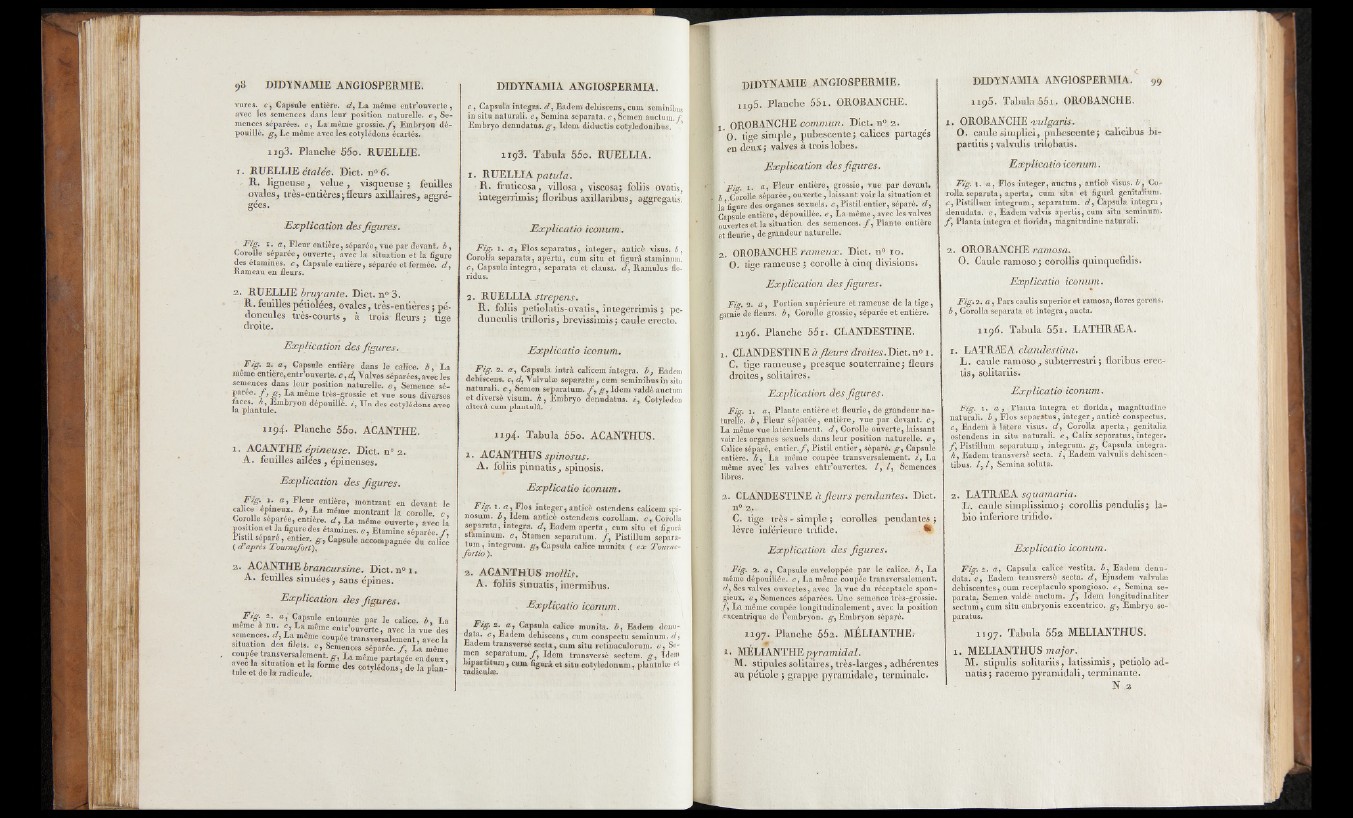 98 DIDYNAMIE ANGIOSPERMIE.
vures. c, Capsule entière. d, La même entr'ouverte,
avec les semences dans leur position naturelle. e, Se-
mences séparées. e, La même grossie. f, Embryon dé-
pouillé. g, Le même avec les cotylédons écartés.
1193. Planche 550. RUELLIE.
1. RUELLIE étalée. Dict. n° 6.
R. ligneuse, velue, visqueuse; feuilles
ovales, très-entières; fleurs axillaires, aggré-
gées.
Explication des figures.
Fig. 1. a, Fleur entière, séparée, vue par devant. b,
Corolle séparée, ouverte, avec la situation et la figure
des étamines. c, Capsule entière, séparée et fermée. d,
Rameau en fleurs.
2. RUELLIE bruyante. Dict. n° 3.
R. feuilles pétiolées, ovales, très-entières; pé-
doncules très-courts, à trois fleurs; tige
droite.
Explication des figures.
Fig. 2. a, Capsule entière dans le calice. b, La
même entière, entr'ouverte. c, d, Valves séparées, avec les
semences dans leur position naturelle. e, Semence sé-
parée. f, g, La même très-grossie et vue sous diverses
faces. h, Embryon dépouillé. i, Un des cotylédons avec
la plantule.
1194. Planche 550. ACANTHE.
1. ACANTHE épineuse. Dict. n° 2.
A. feuilles ailées, épineuses.
Explication des figures.
Fig. 1. a, Fleur entière, montrant en devant le
calice épineux. b, La même montrant la corolle. c,
Corolle séparée, entière. d, La même ouverte, avec la
position et la figure des étamines. e, Etamine séparée. f,
Pistil séparé, entier. g, Capsule accompagnée du calice
(d'après Tournefort).
2. ACANTHE brancursine. Dict. n° 1.
A. feuilles sinuées, sans épines.
Explication des figures.
Fig. 2. a, Capsule entourée par le calice. b, La
même à nu. c, La même entr'ouverte, avec la vue des
semences. d, La même coupée transversalement, avec la
situation des filets. e, Semences séparée. f, La même
coupée transversalement. g, La même partagée en deux,
avec la situation et la forme des cotylédons, de la plan-
tule et de la radicule.
DIDYNAMIA ANGIOSPERMIA.
c, Capsula integra. d, Eadem dehiscens, cum seminibus
in situ naturali. e, Semina separata. e, Semen auctum. f,
Embryo denudatus. g, Idem diductis cotyledonibus.
1193. Tabula 550. RUELLIA.
1. RUELLIA patula.
R. fruticosa, villosa, viscosa; foliis ovatis,
integerrimis; floribus axillaribus, aggregatis.
Explicatio iconum.
Fig. 1. a, Flos separatus, integer, anticè visus. b,
Corolla separata, aperta, cum situ et figurâ staminum.
c, Capsula integra, separata et clausa. d, Ramulus flo-
ridus.
2. RUELLIA strepens.
R. foliis petiolatis-ovatis, integerrimis; pe-
dunculis trifloris, brevissimis; caule erecto.
Explicatio iconum.
Fig. 2. a, Capsula intrà calicem integra. b, Eadem
dehiscens. c, d, Valvulæ separatæ, cum seminibus in situ
naturali. e, Semen separatum. f, g, Idem valdè auctum
et diversè visum. h, Embryo denudatus. i, Cotyledon
alterà cum plantulâ.
1194. Tabula 550. ACANTHUS.
1. ACANTHUS spinosus.
A. foliis pinnatis, spinosis.
Explicatio iconum.
Fig. 1. a, Flos integer, anticè ostendens calicem spi-
nosum. b, Idem anticè ostendens corollam. c, Corolla
separata, integra. d, Eadem aperta, cum situ et figurâ
staminum. e, Stamen separatum. f, Pistillum separa-
tum, integrum. g, Capsula calice munita (ex Tourne-
fortio).
2. ACANTHUS mollis.
A. foliis sinuatis, inermibus.
Explicatio iconum.
Fig. 2. a, Capsula calice munita. b, Eadem denu-
data. c, Eadem dehiscens, cum conspectu seminum. d,
Eadem transversè secta, cum situ retinaculorum. e, Se-
men separatum. f, Idem transversè sectum. g, Idem
bipartitum, cum figurâ et situ cotyledonum, plantulæ et
radiculæ.
DIDYNAMIE ANGIOSPERMIE.
1195. Planche 551. OROBANCHE.
1. OROBANCHE commun. Dict. n° 2.
O. tige simple, pubescente; calices partagés
en deux; valves à trois lobes.
Explication des figures.
Fig. 1. a, Fleur entière, grossie, vue par devant.
b, Corolle séparée, ouverte, laissant voir la situation et
la figure des organes sexuels. c, Pistil entier, séparé. d,
Capsule entière, dépouillée. e, La même, avec les valves
ouvertes et la situation des semences. f, Plante entière
et fleurie, de grandeur naturelle.
2. OROBANCHE rameux. Dict. n° 10.
O. tige rameuse; corolle à cinq divisions.
Explication des figures.
Fig. 2. a, Portion supérieure et rameuse de la tige,
garnie de fleurs. b, Corolle grossie, séparée et entière.
1196. Planche 551. CLANDESTINE.
1. CLANDESTINE à fleurs droites. Dict. n° 1.
C. tige rameuse, presque souterraine; fleurs
droites, solitaires.
Explication des figures.
Fig. 1. a, Plante entière et fleurie, de grandeur na-
turelle. b, Fleur séparée, entière, vue par devant. c,
La même vue latéralement. d, Corolle ouverte, laissant
voir les organes sexuels dans leur position naturelle. e,
Calice séparé, entier. f, Pistil entier, séparé. g, Capsule
entière. h, La même coupée transversalement. i, La
même avec les valves entr'ouvertes. l, l, Semences
libres.
2. CLANDESTINE à fleurs pendantes. Dict.
n° 2.
C. tige très-simple; corolles pendantes;
lèvre inférieure trifide.
Explication des figures.
Fig. 2. a, Capsule enveloppée par le calice. b, La
même dépouillée. c, La même coupée transversalement.
d, Ses valves ouvertes, avec la vue du réceptacle spon-
gieux. e, Semences séparées. Une semence très-grossie.
f, La même coupée longitudinalement, avec la position
excentrique de l'embryon. g, Embryon séparé.
1197. Planche 552. MÉLIANTHE.
1. MÉLIANTHE pyramidal.
M. stipules solitaires, très-larges, adhérentes
au pétiole; grappe pyramidale, terminale.
DIDYNAMIA ANGIOSPERMIA. 99
1195. Tabula 551. OROBANCHE.
1. OROBANCHE vulgaris.
O. caule simplici, pubescente; calicibus bi-
partitis; valvulis trilobatis.
Explicatio iconum.
Fig. 1. a, Flos integer, auctus, anticè visus. b, Co-
rolla separata, aperta, cum situ et figurâ genitalium.
c, Pistillum integrum, separatum. d, Capsula integra,
denudata. e, Eadem valvis apertis, cum situ seminum.
f, Planta integra et florida, magnitudine naturali.
2. OROBANCHE ramosa.
O. Caule ramoso; corollis quinquefidis.
Explicatio iconum.
Fig. 2. a, Pars caulis superior et ramosa, flores gerens.
b, Corolla separata et integra, aucta.
1196. Tabula 551. LATHRÆA.
1. LATRÆA clandestina.
L. caule ramoso, subterrestri; floribus erec-
tis, solitariis.
Explicatio iconum.
Fig. 1. a, Planta integra et florida, magnitudine
naturali. b, Flos separatus, integer, anticè conspectus.
c, Eadem à latere visus. d, Corolla aperta, genitalia
ostendens in situ naturali. e, Calix separatus, integer.
f, Pistillum separatum, integrum. g, Capsula integra.
h, Eadem transversè secta. i, Eadem valvulis dehiscen-
tibus. l, l, Semina soluta.
2. LATRÆA squamaria.
L. caule simplissimo; corollis pendulis; la-
bio inferiore trifido.
Explicatio iconum.
Fig. 2. a, Capsula calice vestita. b, Eadem denu-
data. c, Eadem transversè secta. d, Ejusdem valvulæ
dehiscentes, cum receptaculo spongioso. e, Semina se-
parata, Semen valdè auctum. f, Idem longitudinaliter
sectum, cum situ embryonis excentrico. g, Embryo se-
paratus.
1197. Tabula 552 MELIANTHUS.
1. MELIANTHUS major.
M. stipulis solitariis, latissimis, petiolo ad-
natis; racemo pyramidali, terminante.
N 2